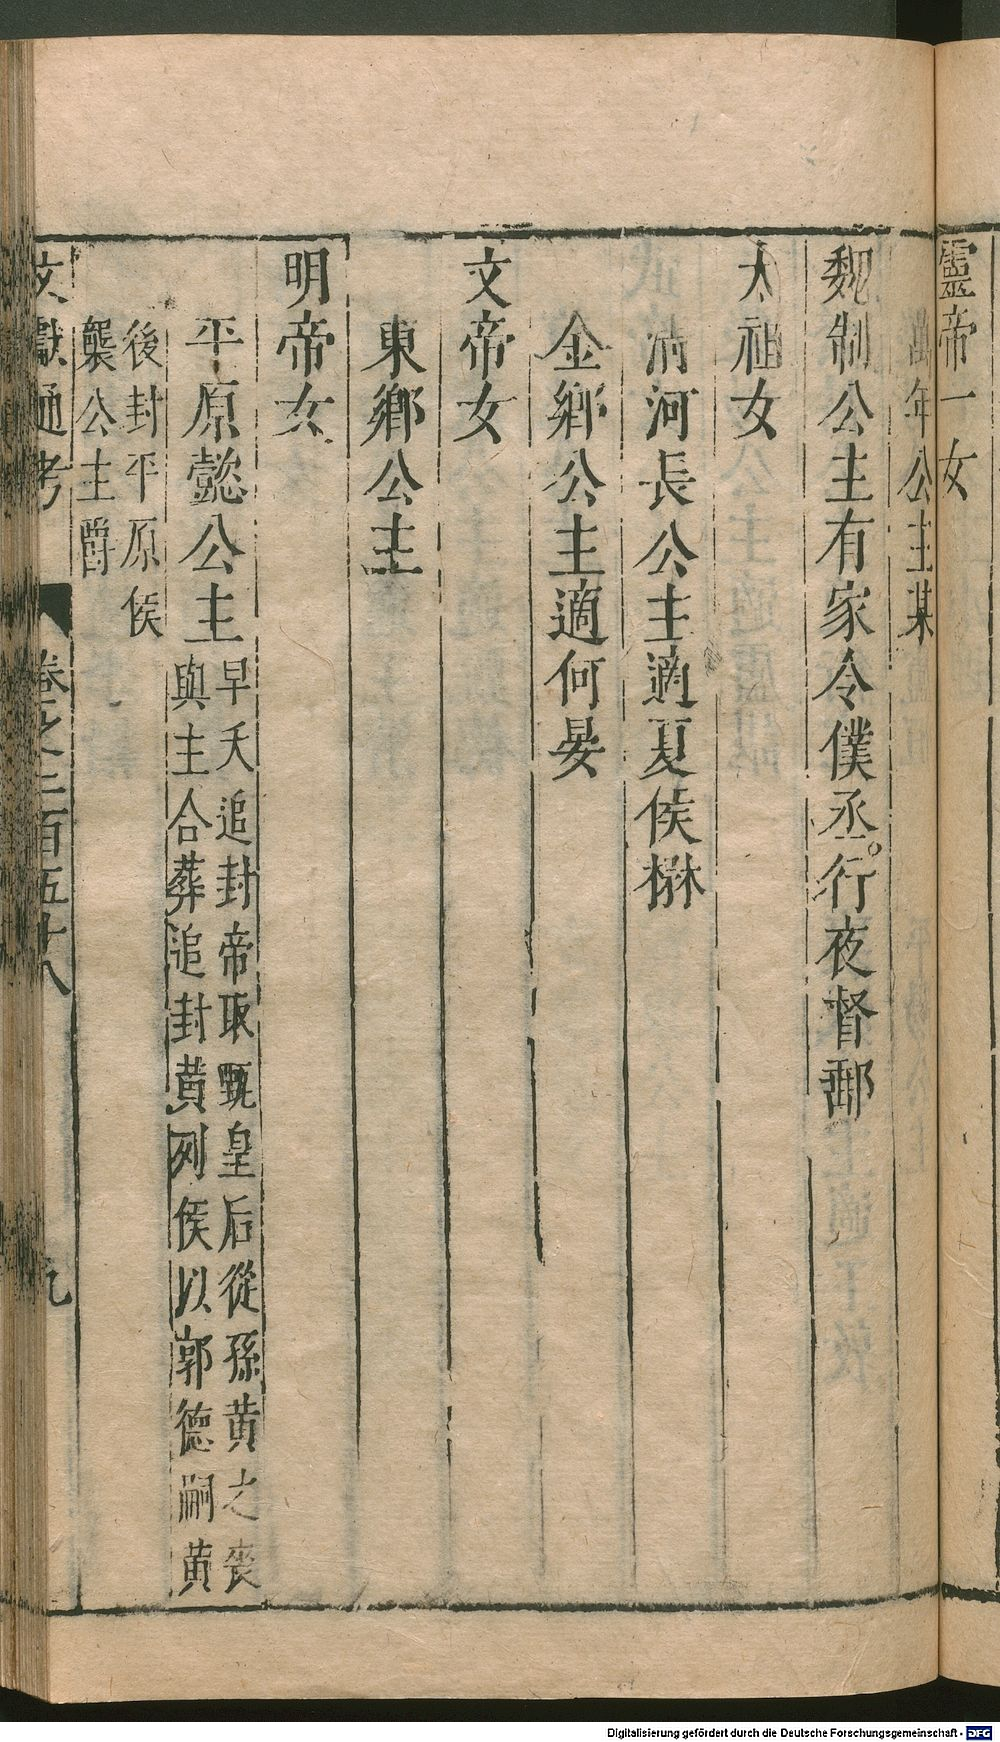 靈帝一女
萬年公主某
魏制公主有家令僕丞行夜督郵
太祖女
清河長公主適夏侯楙
金鄉公主適何晏
文帝女
東鄉公主
明帝女
平原懿公主早夭追封帝取甄皇后從孫黄之喪
與主合葬追封黄列侯以郭德嗣黄
後封平原侯
襲公主爵
文獻通考 卷之二百五十八 九
Digitalisierung gefördert durch die Deutsche Forschungsgemeinschaft - DFG